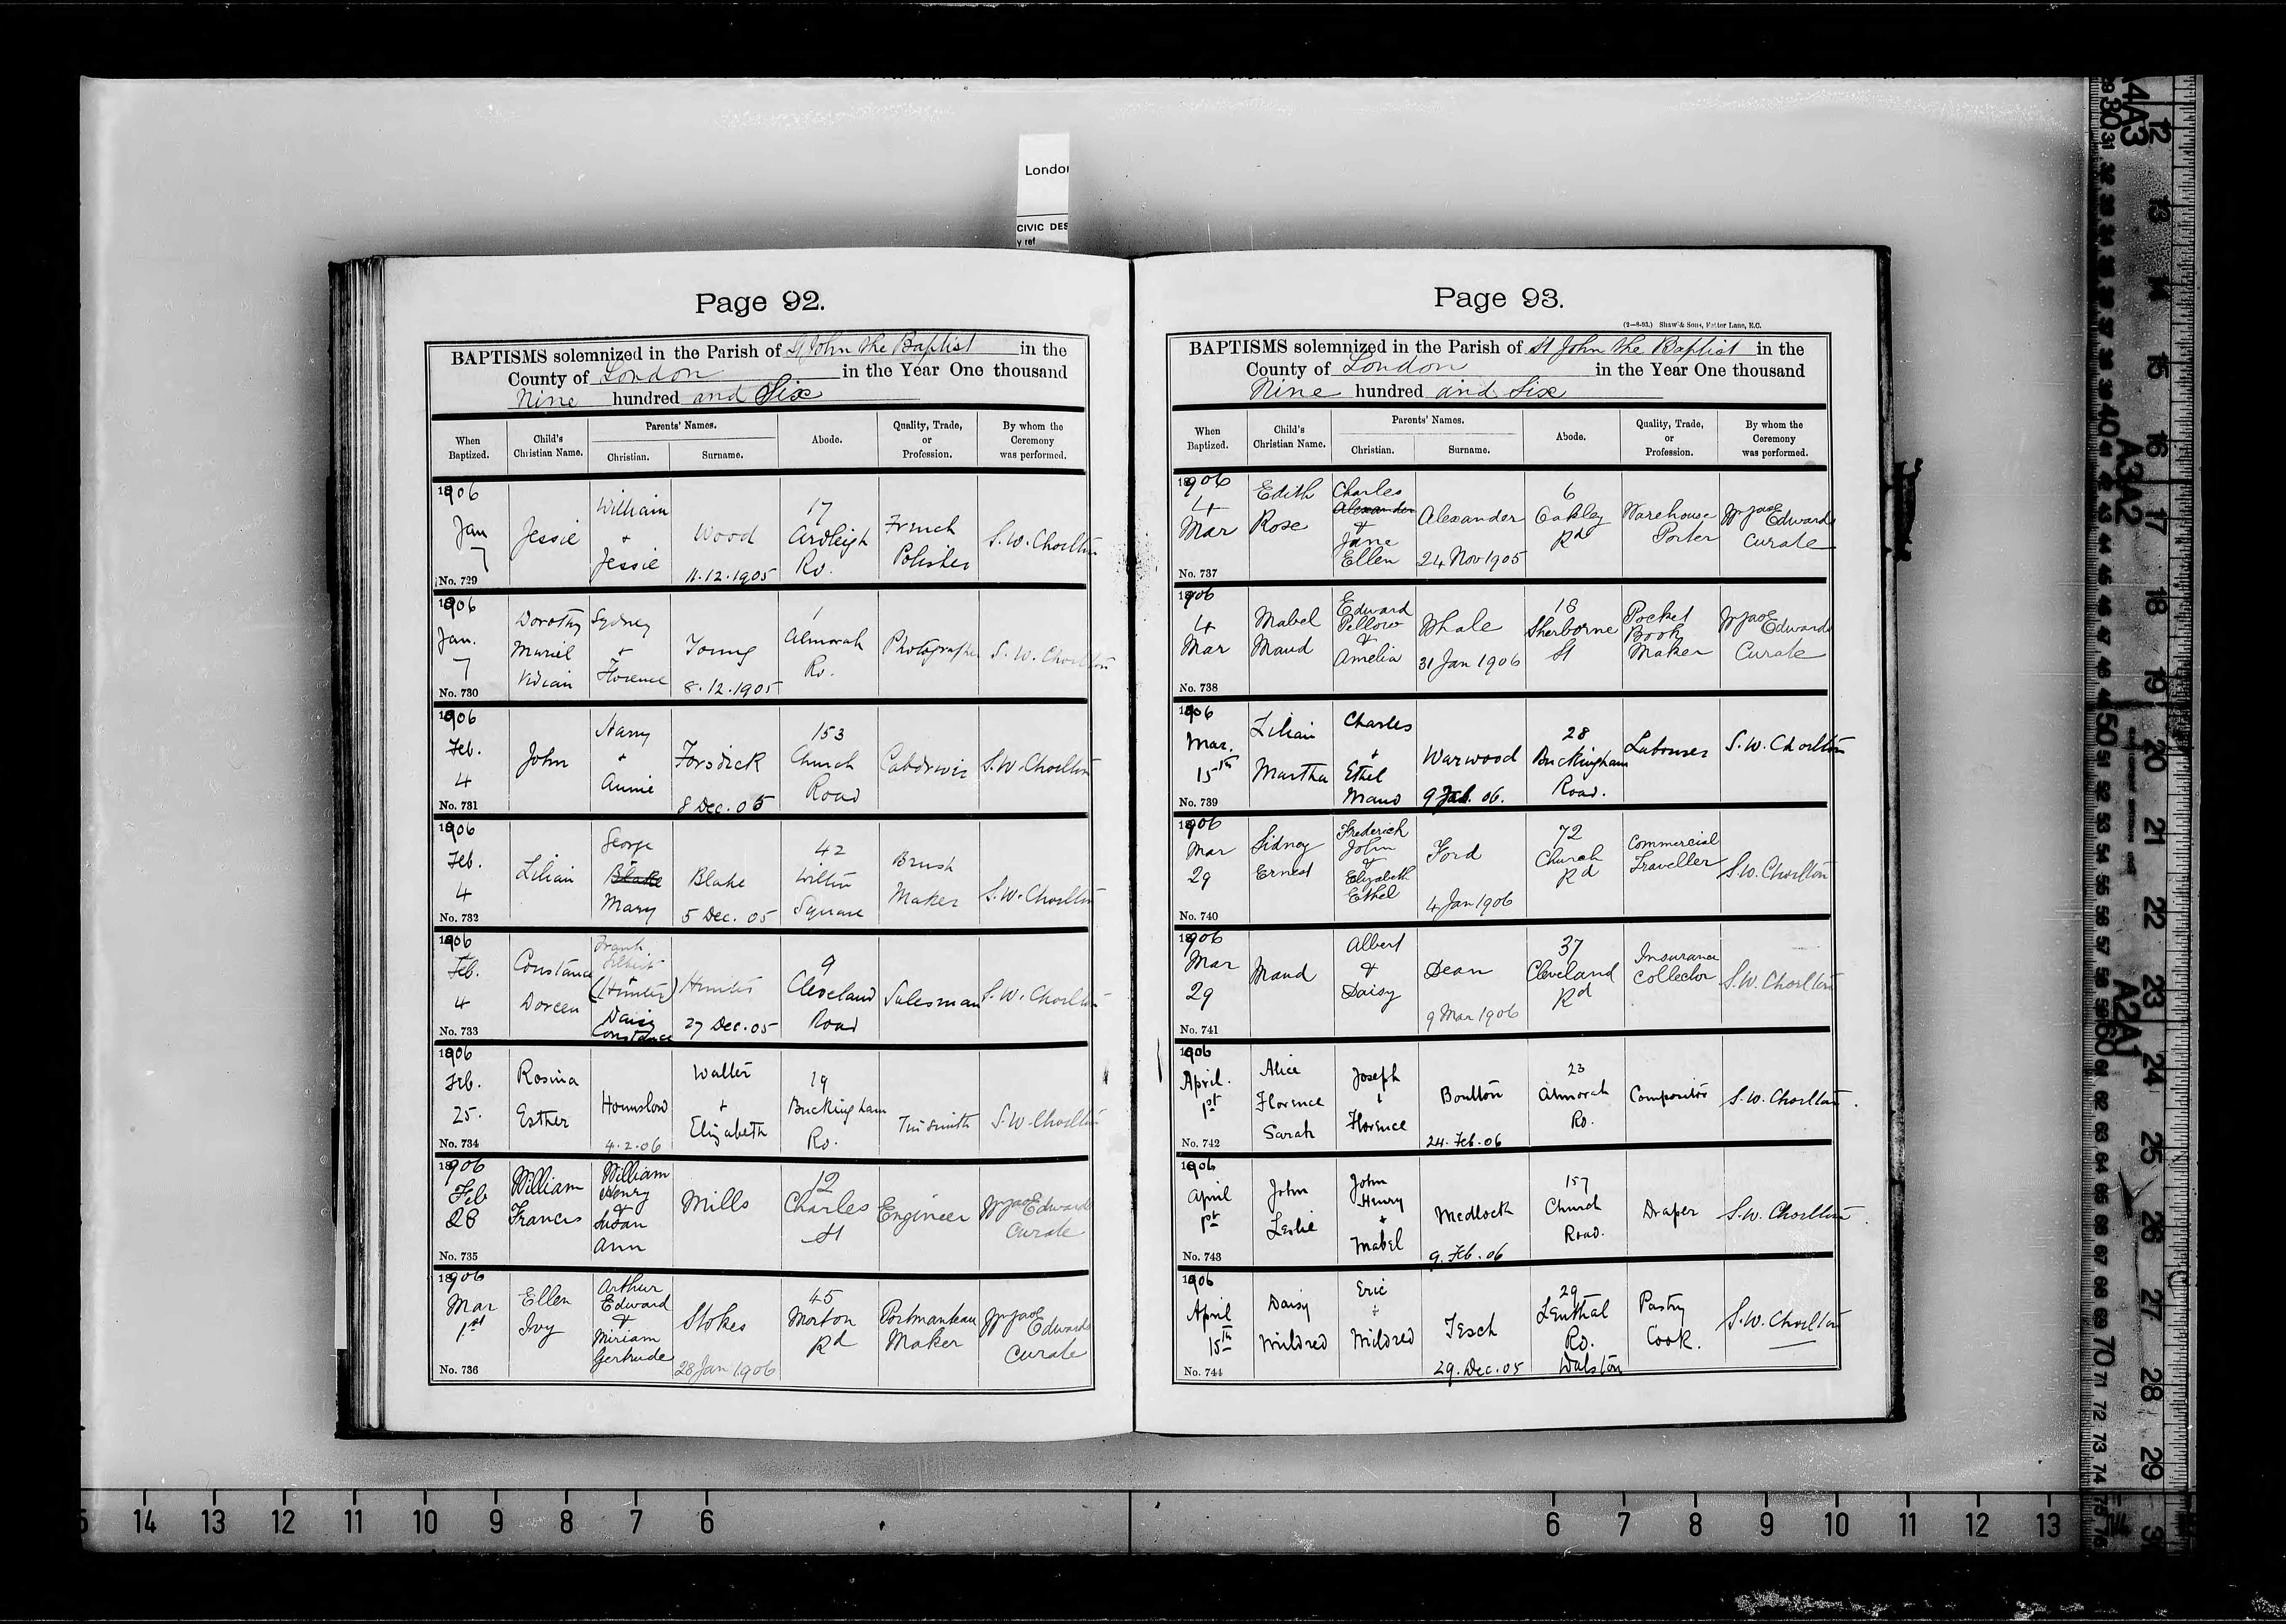 London
CIVIC DES
y ref
Page 92.
BAPTISMS solemnized in the Parish of St John the Baptist in the
County of London in the Year One thousand
Nine hundred and Six
When Baptized. Child's Christian Name. Parents' Names. Christian. Surname. Abode. Quality, Trade, or Profession. By whom the Ceremony was performed.
1906 Jan 7 Jessie William + Jessie Wood 11.12.1905 17 Ardleigh Rd. French Polisher S.W. Chorlton
No. 729
1906 Jan. 7 Dorothy Muriel Vivian Sydney + Florence Young 8.12.1905 1 Almorah Rd. Photographer S.W. Chorlton
No. 730
1906 Feb. 4 John Harry + Annie Forsdick 8 Dec. 05 153 Church Road Cabdriver S.W. Chorlton
No. 731
1906 Feb. 4 Lilian George + Blake Mary Blake 5 Dec. 05 42 Wilton Square Brush Maker S.W. Chorlton
No. 732
1906 Feb. 4 Constance Doreen Frank + (Hunter) Daisy Constance Hunter 27 Dec. 05 9 Cleveland Road Salesman S.W. Chorlton
No. 733
1906 Feb. 25. Rosina Esther Hounslow 4.2.06 Walter + Elizabeth 19 Buckingham Rd. Tinsmith S.W. Chorlton
No. 734
1906 Feb 28 William Francis William Henry & Susan Ann Mills 12 Charles St Engineer Edwards Curate
No. 735
1906 Mar 1st Ellen Ivy Arthur Edward & Miriam Gertrude Stokes 28 Jan 1906 45 Morton Rd Portmanteau Maker Edwards Curate
No. 736
Page 93.
(2—8-93.) Shaw & Sons, Fetter Lane, E.C.
BAPTISMS solemnized in the Parish of St John the Baptist in the
County of London in the Year One thousand
Nine hundred and Six
When Baptized. Child's Christian Name. Parents' Names. Christian. Surname. Abode. Quality, Trade, or Profession. By whom the Ceremony was performed.
1906 4 Mar Edith Rose Charles Alexander & Jane Ellen Alexander 24 Nov 1905 6 Oakley Rd Warehouse Porter Edwards Curate
No. 737
1906 4 Mar Mabel Maud Edward Pellow & Amelia Whale 31 Jan 1906 18 Sherborne St Pocket Book Maker Edwards Curate
No. 738
1906 Mar. 15th Lilian Martha Charles + Ethel Maud Warwood 9 Feb. 06. 28 Buckingham Road. Labourer S.W. Chorlton
No. 739
1906 Mar 29 Sidney Ernest Frederick John & Elizabeth Ethel Ford 4 Jan 1906 72 Church Rd Commercial Traveller S.W. Chorlton
No. 740
1906 Mar 29 Maud Albert & Daisy Dean 9 Mar 1906 37 Cleveland Rd Insurance Collector S.W. Chorlton
No. 741
1906 April. 1st Alice Florence Sarah Joseph + Florence Boulton 24. Feb. 06 23 Almorah Rd. Compositor S.W. Chorlton.
No. 742
1906 April 1st John Leslie John Henry + Mabel Medlock 9. Feb. 06 157 Church Road. Draper S.W. Chorlton.
No. 743
1906 April 15th Daisy Mildred Eric + Mildred Tesch 29. Dec. 05 29 Lenthal Rd. Dalston Pastry Cook. S.W. Chorlton
No. 744
14 13 12 11 10 9 8 7 6 6 7 8 9 10 11 12 13
A4 A3
A3 A2
A2 A1
12 13 14 15 16 17 18 19 20 21 22 23 24 25 26 27 28 29